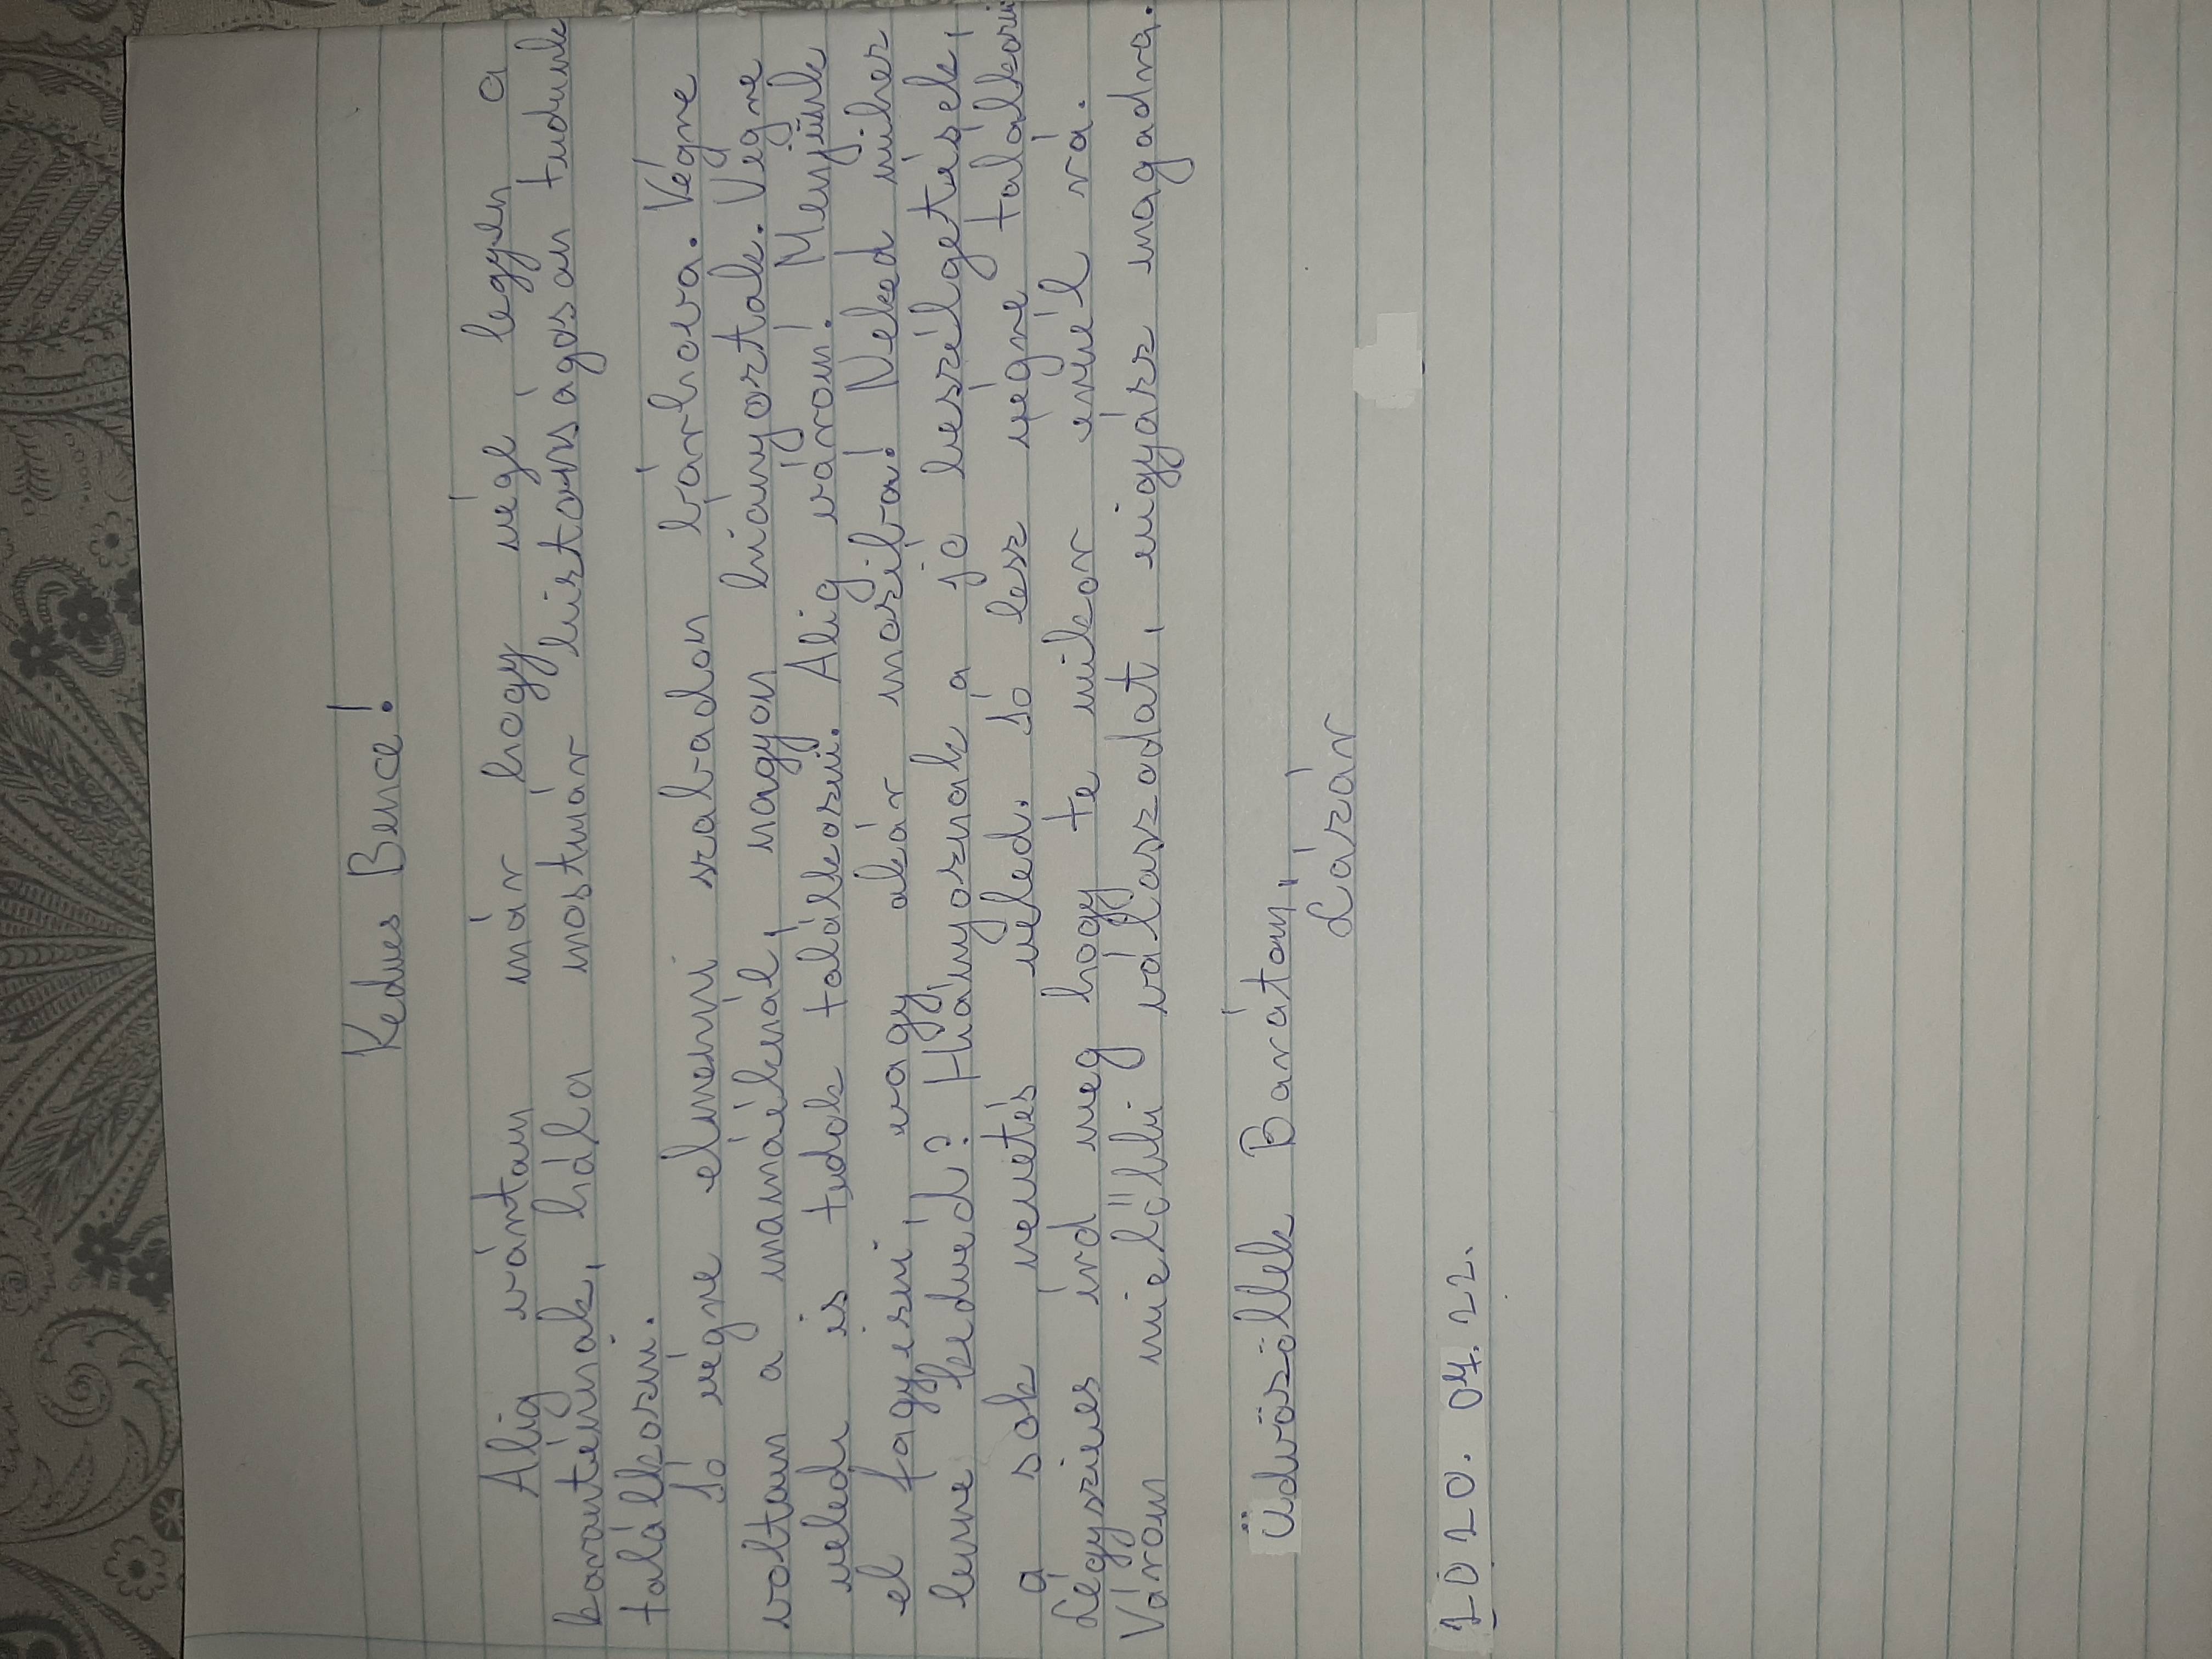 Kedves Bence!
Alig vártam már hogy vége legyen a
karanténnak, hála mostmár biztonságosan tudunk
találkozni.
Jó végre elmenni szabadon bárhova. Végre
voltam a mamáéknál, nagyon hiányoztak. Végre
veled is tudok találkozni. Alig várom! Menjünk
el fagyizni, vagy akár moziba! Neked mihez
lenne kedved? Hiányoznak a jó beszélgetések,
a sok nevetés veled. Jó lesz végre találkozni
Légyszíves írd meg hogy te mikor érnél rá.
Várom mielőbbi válaszodat, vigyázz magadra.
Üdvözöllek Barátom,
Lázár
2020. 04. 22.